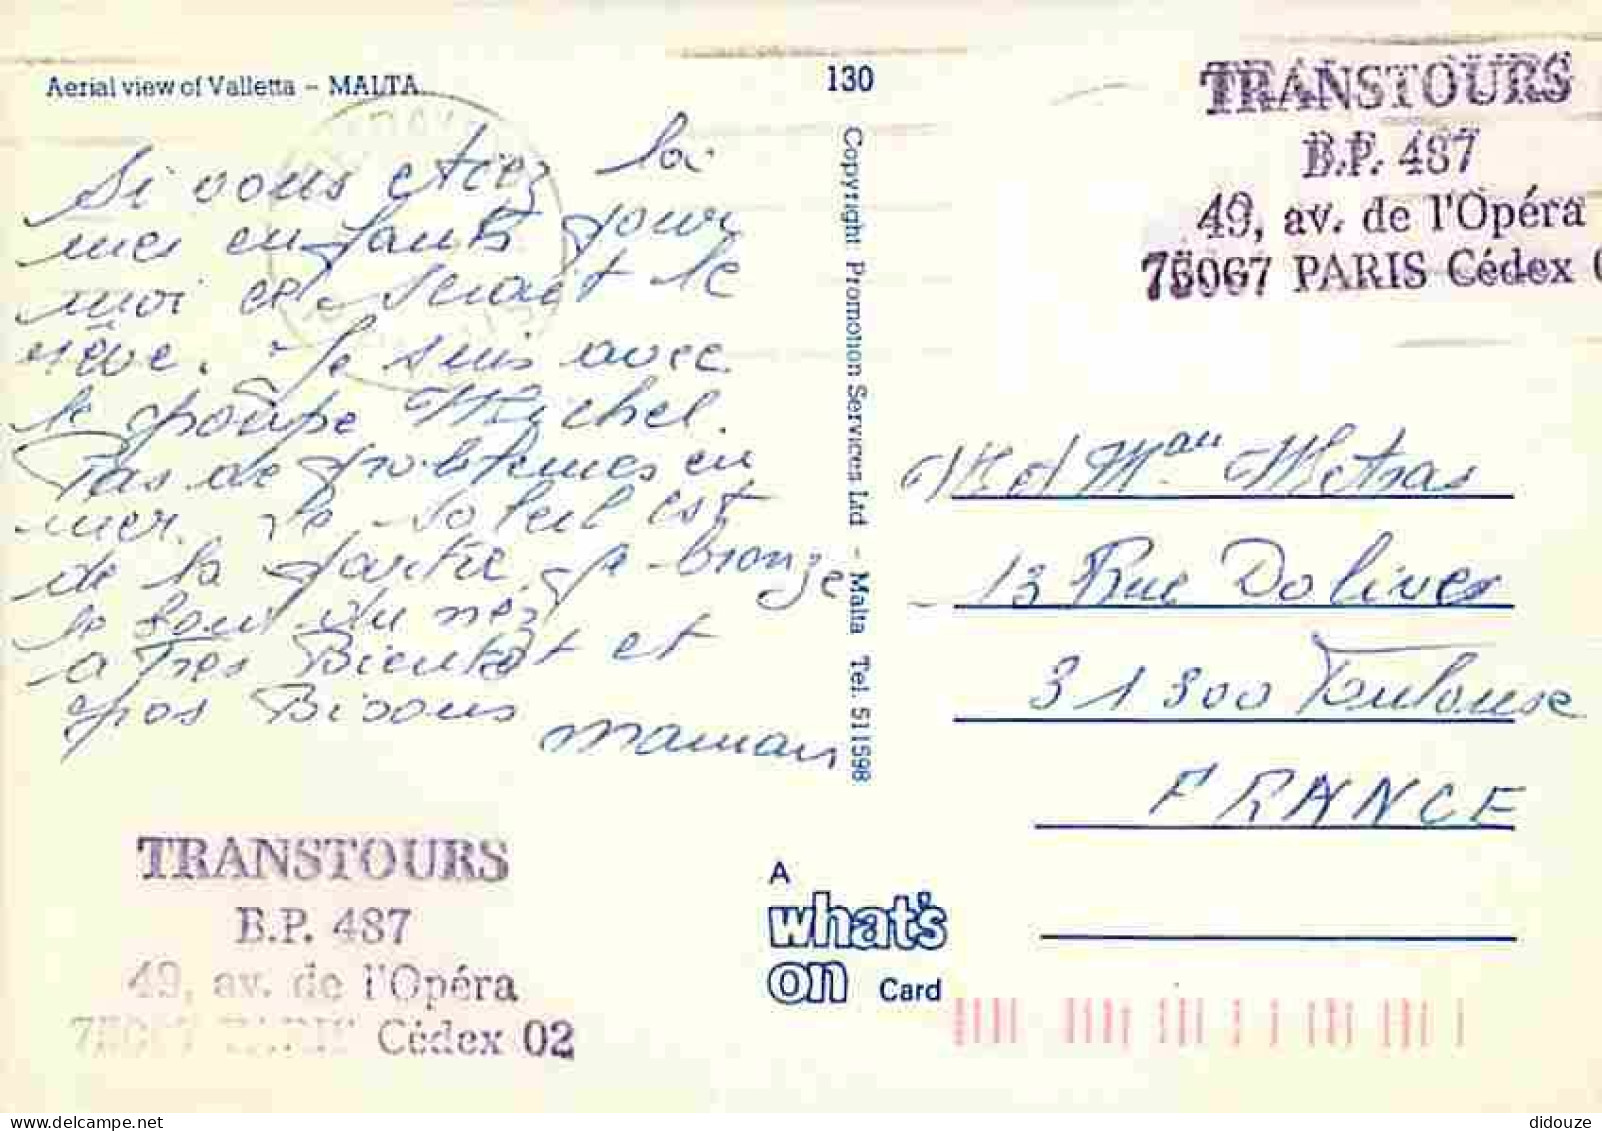 Aerial view of Valletta – MALTA
130
Si vous etiez la
mes enfants pour
moi ce serait le
rêve. Je suis avec
le groupe Michel.
Pas de problemes en
mer. le soleil est
de la partie. je bronze
le bout du nez
a Tres Bientot et
gros Bisous
maman
Copyright Promotion Services Ltd - Malta Tel. 511598
TRANSTOURS
B.P. 487
49, av. de l'Opéra
75067 PARIS Cédex
M et Mme Metras
13 Rue Dolives
31300 Toulouse
FRANCE
TRANSTOURS
B.P. 487
49, av. de l'Opéra
75067 PARIS Cédex 02
A
what's
on Card
www.delcampe.net
didouze